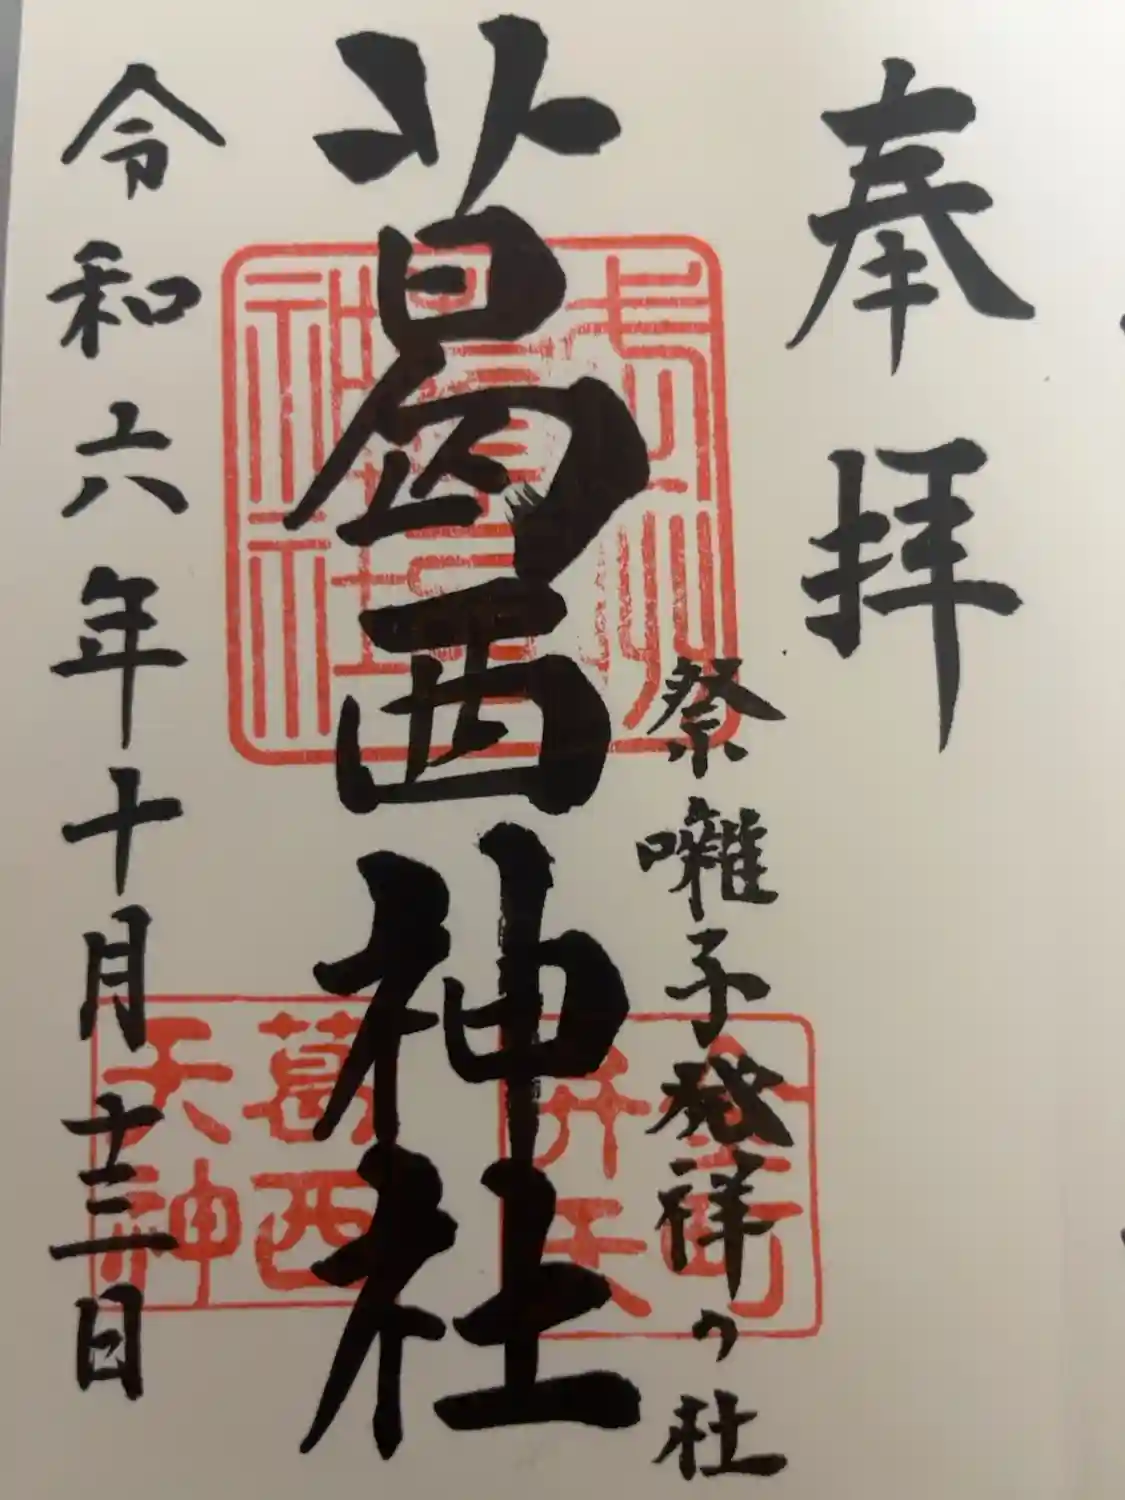 奉拝
祭囃子発祥の社
葛西神社
令和六年十月十三日
弁天
葛西
天神